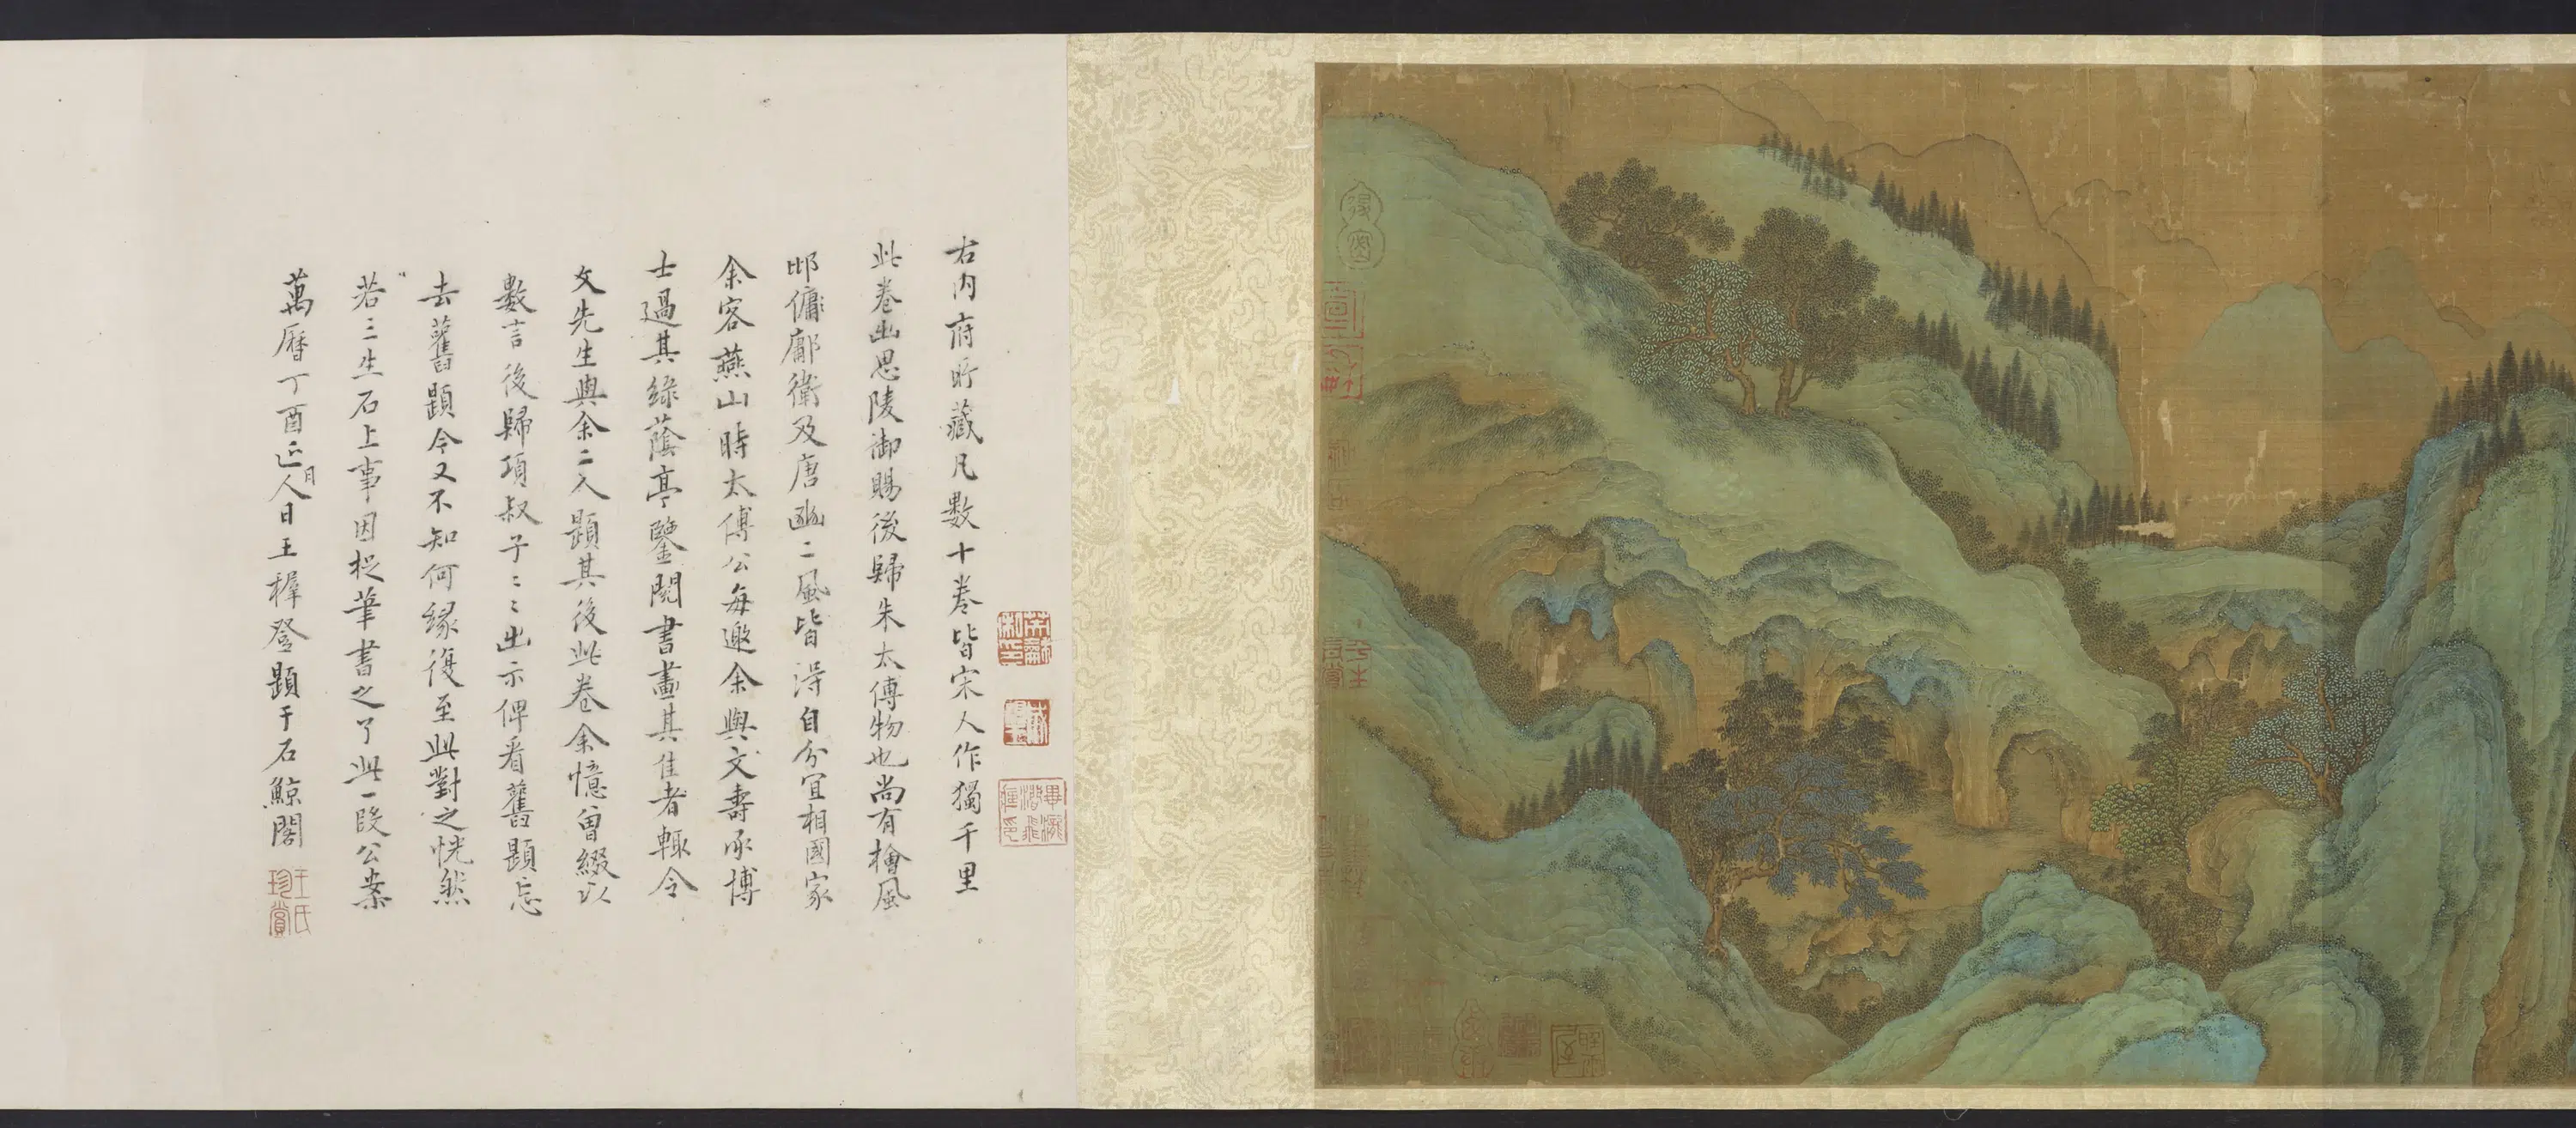 右內府所藏凡數十卷皆宋人作獨千里
此卷出思陵御賜後歸朱太傅物也尚有檜風
邶鄘鄘衛及唐豳二風皆得自分宜相國家
余客燕山時太傅公每邀余與文壽承博
士過其綠蔭亭鑒閱書畫其佳者輒令
文先生與余二人題其後此卷余憶曾綴以
數言後歸項叔子〻〻出示俾看舊題忘
去舊題今又不知何緣復至此對之恍然
若三生石上事因捉筆書之了此一段公案
萬曆丁酉正月人日王穉登題于石鯨閣
王氏珍賞